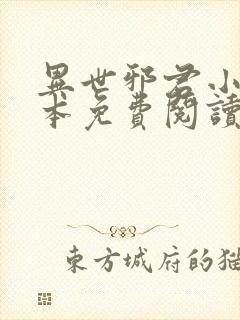 異世邪君小
本免費閱讀
東方城府的猫